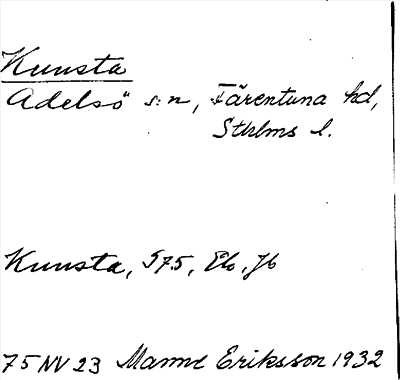 Kunsta
Adelsö s:n, Färentuna hd,
Sthlms l.
Kunsta, S75, Eb, Jb
75 NV 23 Manne Eriksson 1932